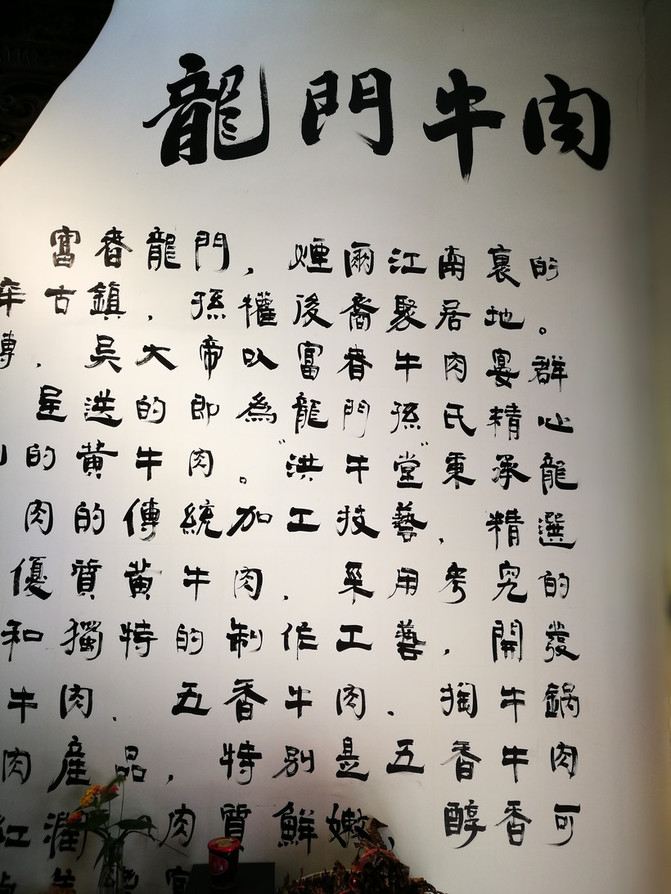 龍門牛肉
富春龍門，煙雨江南裏的
年古鎮，孫權後裔聚居地。
傳，吳大帝以富春牛肉宴群
呈送的即為龍門孫氏精心
的黄牛肉。“洪牛堂”秉承龍
肉的傳統加工技藝，精選
優質黄牛肉，采用考究的
和獨特的制作工藝，開發
牛肉、五香牛肉、掏牛鍋
肉産品，特别是五香牛肉
紅潤，肉質鮮嫩，醇香可